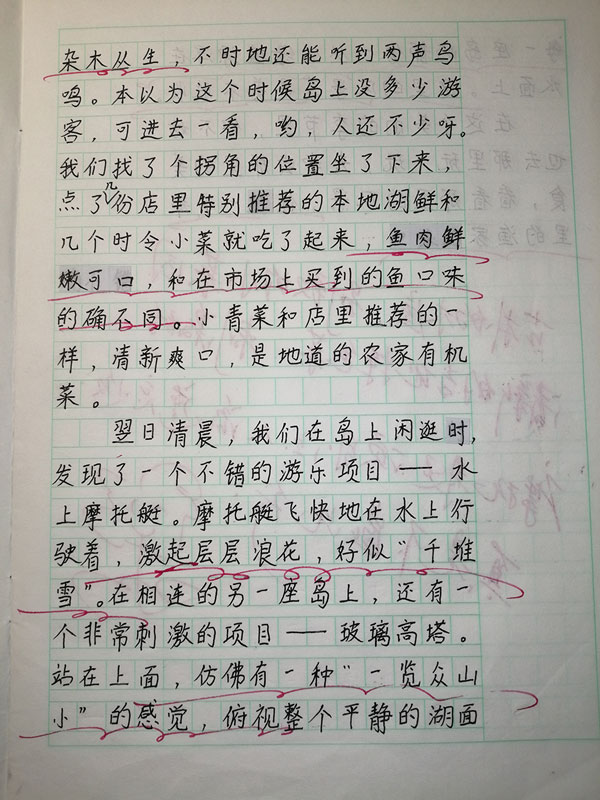 杂木丛生，不时地还能听到两声鸟
鸣。本以为这个时候岛上没多少游
客，可进去一看，哟，人还不少呀。
我们找了个拐角的位置坐了下来，
点了几份店里特别推荐的本地湖鲜和
几个时令小菜就吃了起来，鱼肉鲜
嫩可口，和在市场上买到的鱼口味
的确不同。小青菜和店里推荐的一
样，清新爽口，是地道的农家有机
菜。
翌日清晨，我们在岛上闲逛时，
发现了一个不错的游乐项目——水
上摩托艇。摩托艇飞快地在水上行
驶着，激起层层浪花，好似“千堆
雪”。在相连的另一座岛上，还有一
个非常刺激的项目——玻璃高塔。
站在上面，仿佛有一种“一览众山
小”的感觉，俯视整个平静的湖面